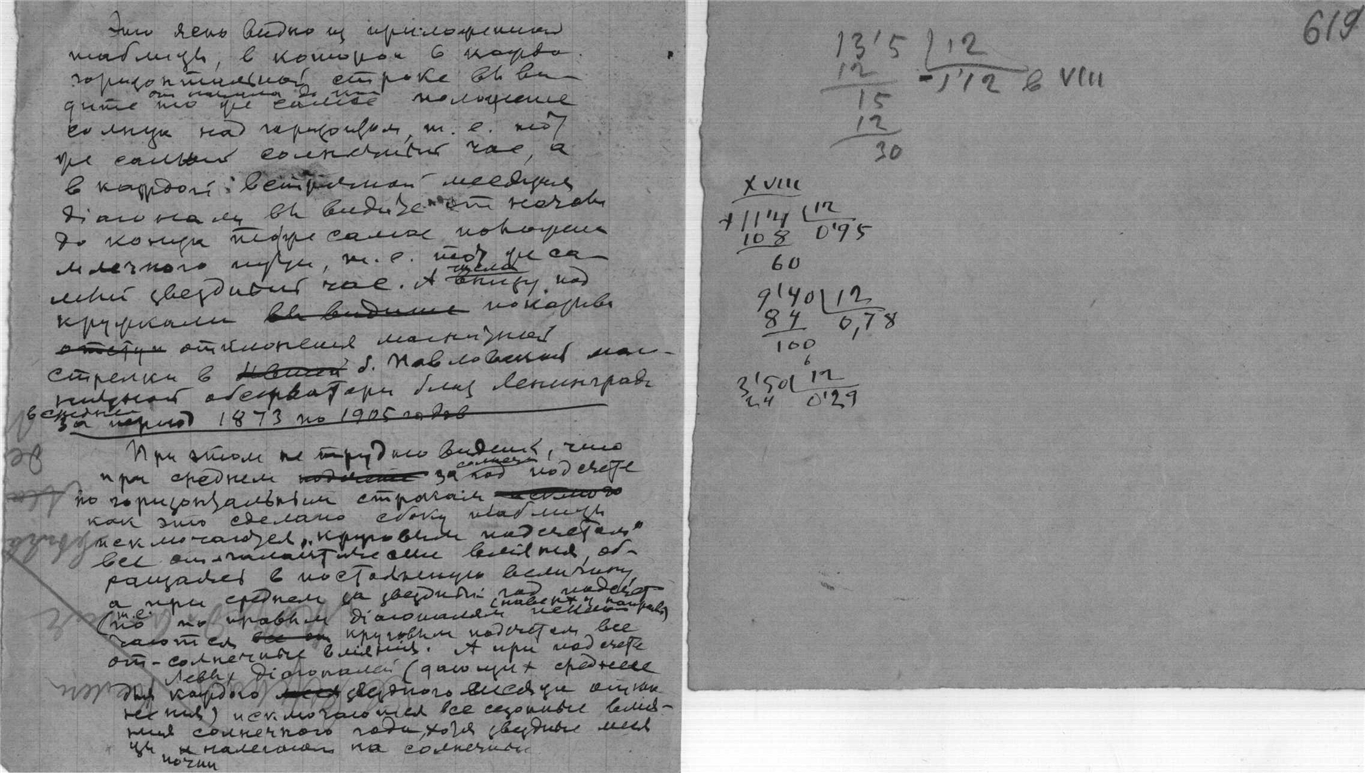 Это ясно видно из приложенной
таблицы, в которой в каждой
горизонтальной строке вы ви-
от начала до
дите то же самое положение
солнца над горизонтом, т. е. тот
же самый солнечный час, а
в каждой месяца
диагонали вы видите от начала
до конца тоже самое положение
млечного пути, т. е. тот же са-
мый звездный час. А внизу под
числа
кружками вы видите показаны
отклонения магнитной
стрелки в б. Павловской маг-
нитной обсерватории близ Ленинграда
в среднем
за период 1873 по 1905 годов
При этом не трудно видеть, что
при среднем за год подсчете
солнечн
по горизонтальным строкам
как это сделано сбоку таблицы
исключается „круговым подсчетом"
все влияния, об-
ращаясь в постоянную величину
а при среднем за звездный год подсчете
(т.е. по правым диагоналям
чаются круговым подсчетом все
от-солнечные влияния. А при подсчете
левых диагоналей (дающих среднее
для каждого звездного месяца откло
нения) исключаются все сезонные влия-
ния солнечного года, хотя звездные меся
цы и налегают на солнечные
почти
619
13'5 12
12 1'12 в VIII
15
12
30
XVIII
11'4 12
108 0'95
60
9'40 12
84 0,78
100
3'50 12
24 0'29